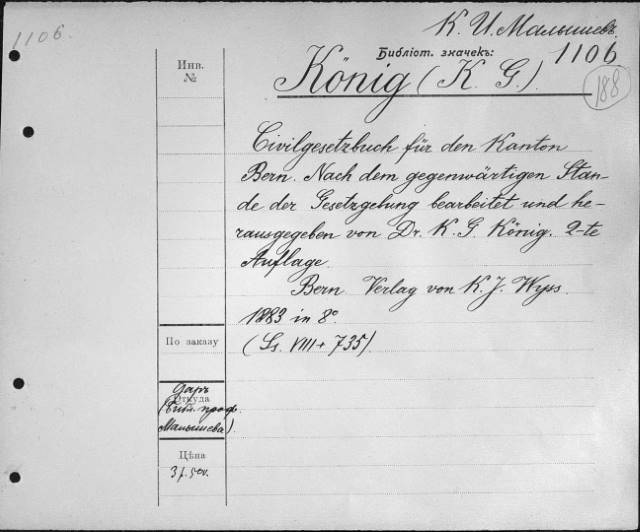 1106.
К. И. Малышевъ
Библіот. значекъ:
1106
188
König (K. G.)
Civilgesetzbuch für den Kanton
Bern. Nach dem gegenwärtigen Stan-
de der Gesetzgebung bearbeitet und he-
rausgegeben von Dr. K. G. König. 2-te
Auflage
Bern Verlag von K. J. Wyss.
1883 in 8º
(Ss. VIII + 735).
Инв.
№
По заказу
Откуда
Даръ
(Библ. проф.
Малышева).
Цѣна